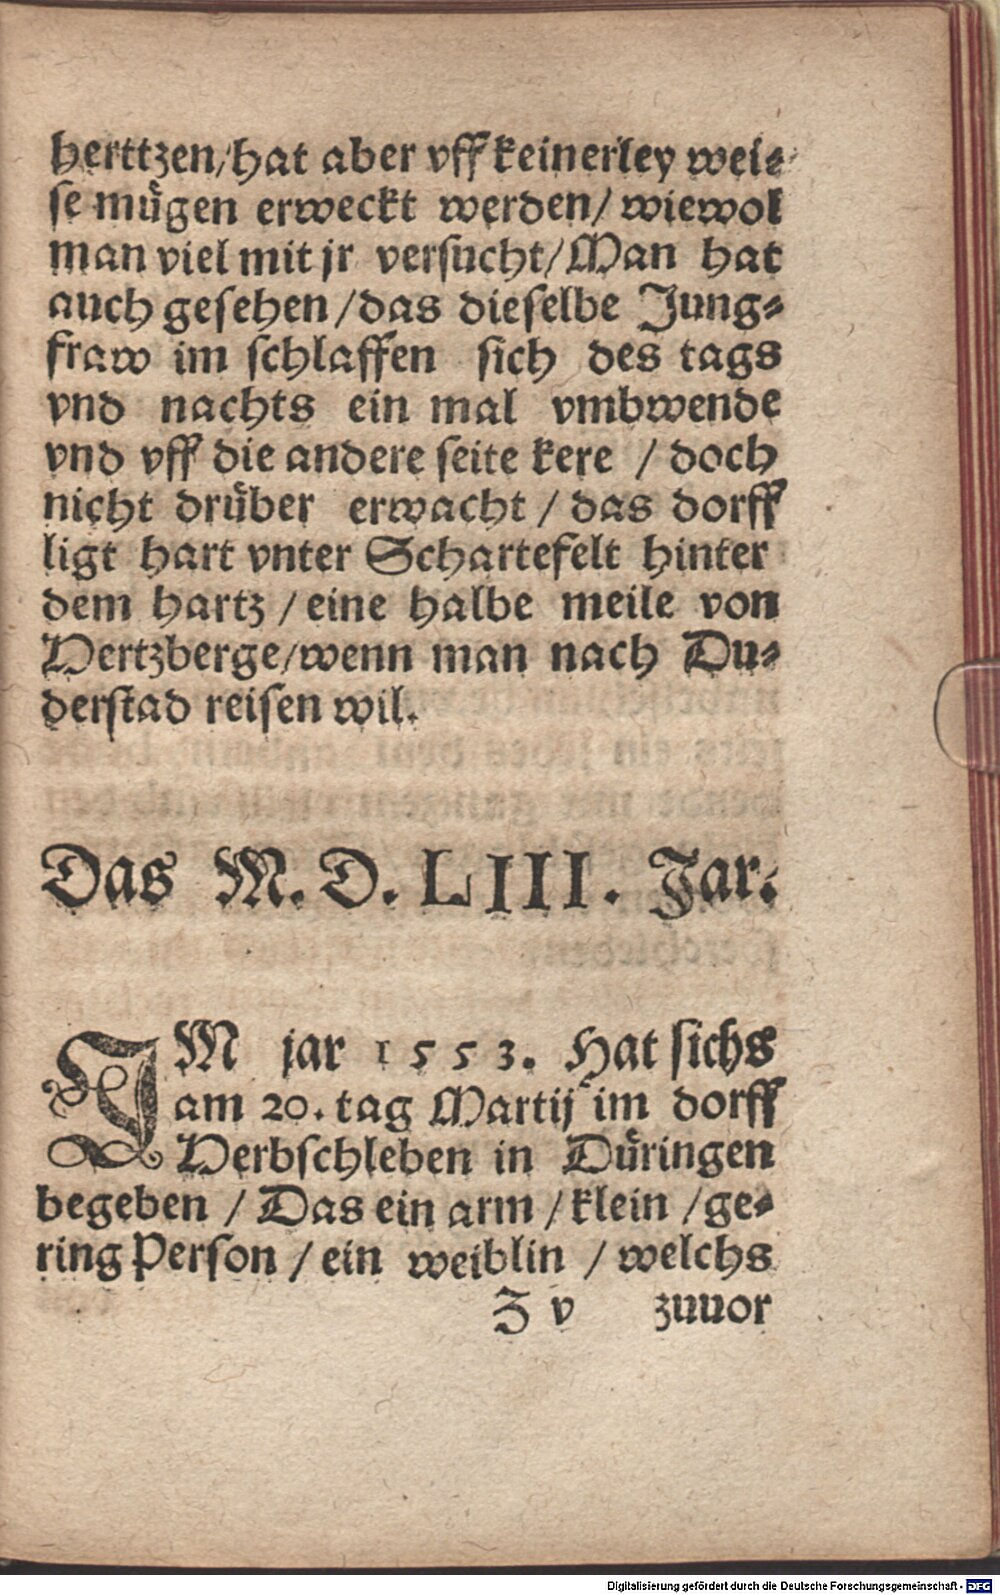 herttzen/hat aber vff keinerley wei⸗
se muͤgen erweckt werden/ wiewol
man viel mit jr versucht/Man hat
auch gesehen /das dieselbe Jung⸗
fraw im schlaffen sich des tags
vnd nachts ein mal vmbwende
vnd vff die andere seite kere / doch
nicht druͤber erwacht / das dorff
ligt hart vnter Schartefelt hinter
dem hartz / eine halbe meile von
Hertzberge/wenn man nach Du⸗
derstad reisen wil.
Das M. D. LIII. Jar.
IM jar 1553. Hat sichs
am 20. tag Martij im dorff
Herbschleben in Duͤringen
begeben / Das ein arm / klein / ge⸗
ring Person / ein weiblin / welchs
Z v zuuor
Digitalisierung gefördert durch die Deutsche Forschungsgemeinschaft - DFG